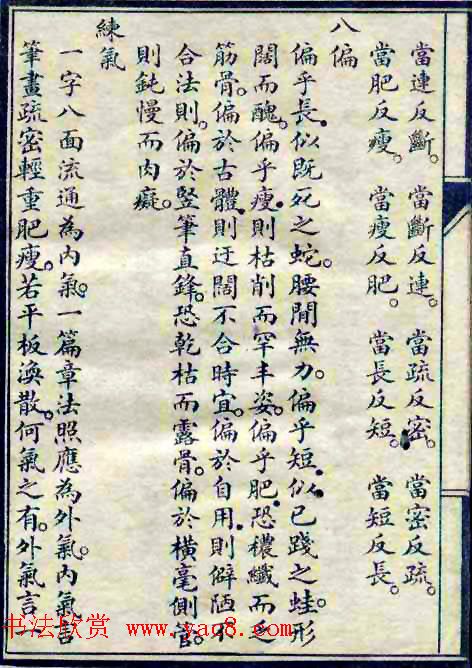 當連反斷。當斷反連。當疏反密。當密反疏。
當肥反瘦。當瘦反肥。當長反短。當短反長。
八偏
偏乎長。似既死之蛇。腰間無力。偏乎短。似已踐之蛙。形
闊而醜。偏乎瘦。則枯削而罕丰姿。偏乎肥。恐穠纖而乏
筋骨。偏於古體。則迂闊不合時宜。偏於自用。則僻陋不
合法則。偏於竪筆直鋒。恐乾枯而露骨。偏於橫毫側管。
則鈍慢而肉癡。
練氣
一字八面流通為內氣。一篇章法照應為外氣。內氣言
筆畫疏密輕重肥瘦。若平板渙散。何氣之有。外氣言一
书法欣赏 www.yac8.com